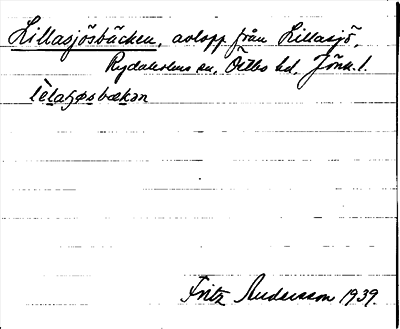 Lillasjösbäcken, avlopp från Lillasjö,
Rydaholms sn, Östbo hd, Jönk. l.
Fritz Andersson 1939.